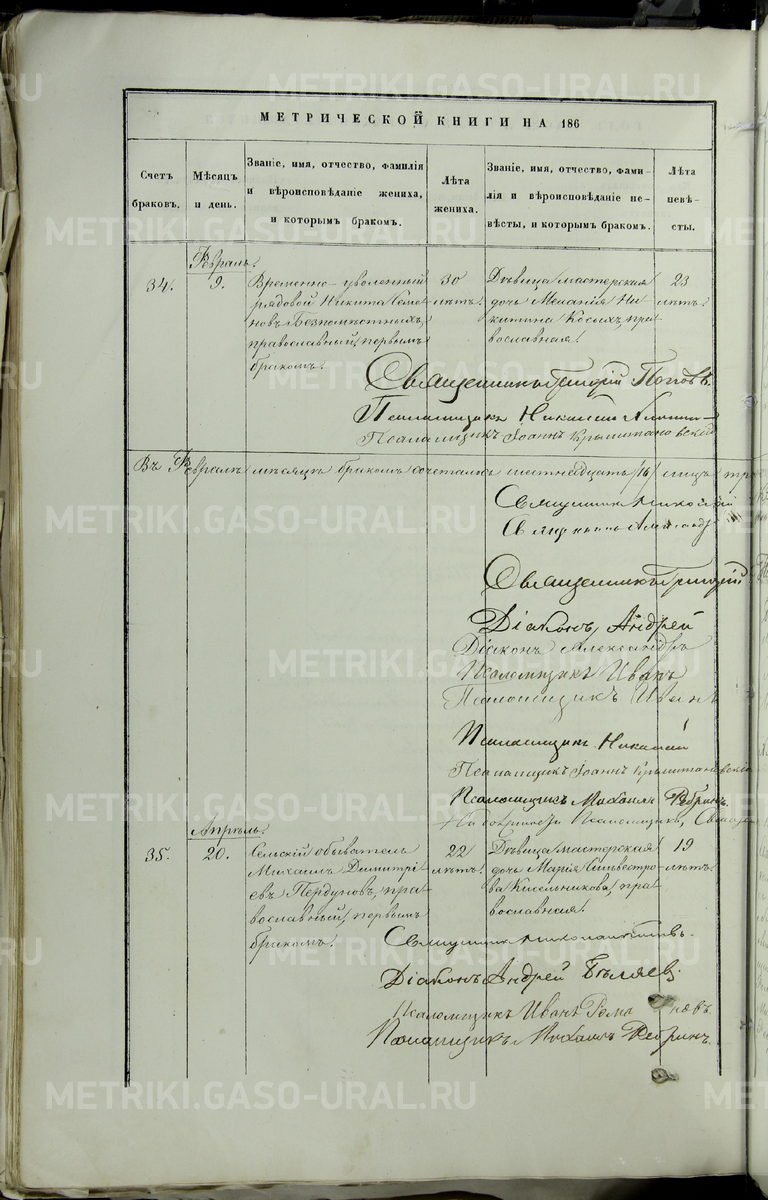 METRIKI.GASO-URAL.RU
МЕТРИЧЕСКОЙ КНИГИ НА 186
Счетъ браковъ.
Мѣсяцъ и день.
Званіе, имя, отчество, фамилія
и вѣроисповѣданіе жениха,
и которымъ бракомъ.
Лѣта жениха.
Званіе, имя, отчество, фами-
лія и вѣроисповѣданіе не-
вѣсты, и которымъ бракомъ.
Лѣта невѣ-
сты.
Февраль.
34.
9.
Временно-уволенный
рядовой Никита Семе-
новъ Безпомѣстныхъ,
православный, первымъ
бракомъ.
30
лѣтъ.
Дѣвица мастерская
дочь Меланія Ни-
китина Косыхъ, пра
вославная.
23
лѣтъ.
Священникъ Григорій Поповъ.
Псаломщикъ Николай
Псаломщикъ Іоаннъ Крыштановскій
Въ Февралѣ мѣсяцѣ бракомъ сочеталось шестнадцать /16/ лицъ
Священникъ Николай
Священникъ Александр
Священникъ Григорій
Діаконъ Андрей
Діаконъ Александръ
Псаломщикъ Иванъ
Псаломщикъ Иванъ
Псаломщикъ Николай
Псаломщикъ Іоаннъ Крыштановскій
Псаломщикъ Михаилъ Ребринъ.
Псаломщикъ,
Апрѣль.
35.
20.
Сельскій обыватель
Михаилъ Димитрі-
евъ Пердуновъ, пра
вославный, первымъ
бракомъ.
22
лѣтъ.
Дѣвица мастерская
дочь Марія Сильвестро-
ва Кисельникова, пра
вославная.
19
лѣтъ.
Священникъ
Діаконъ Андрей Бѣляев.
Псаломщикъ Иванъ Романовъ.
Псаломщикъ Михаилъ Ребринъ.